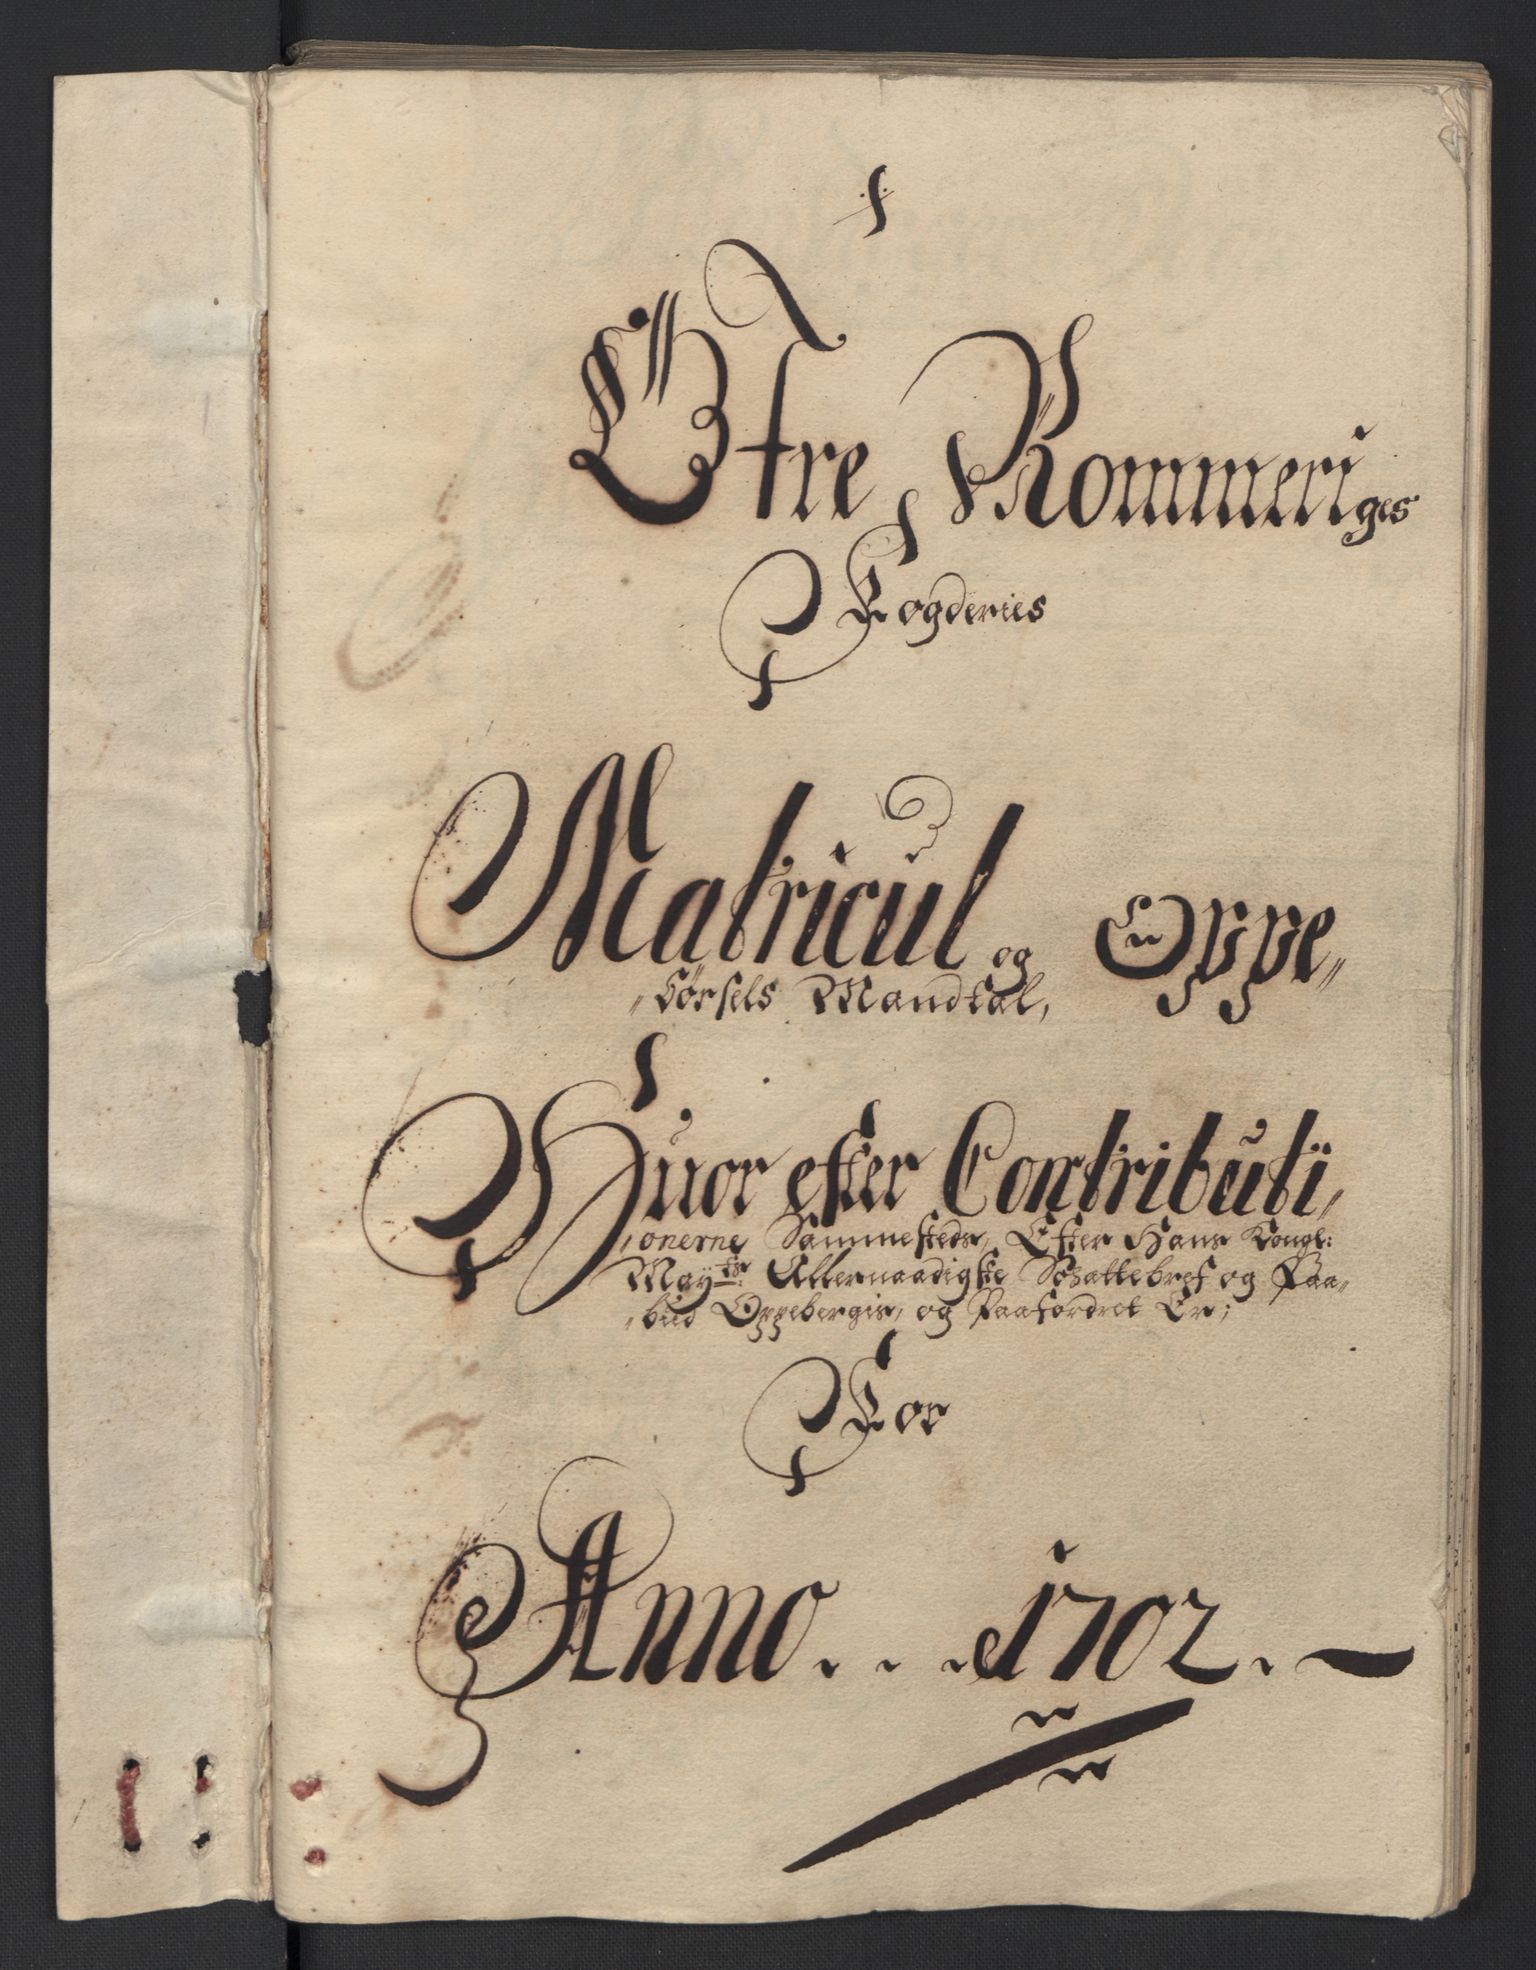 Øfre Rommeriges
Fogderies
Matricul og Oppe„
„børsels Mandtal,
Huor efter Contributi„
„onerne Sammesteds, Efter Hans Kongl:
May:ts Allernaadigste Schattebref og Paa„
„bud Oppebergis, og Paafordret Er;
For
Anno . . . 1702 . —